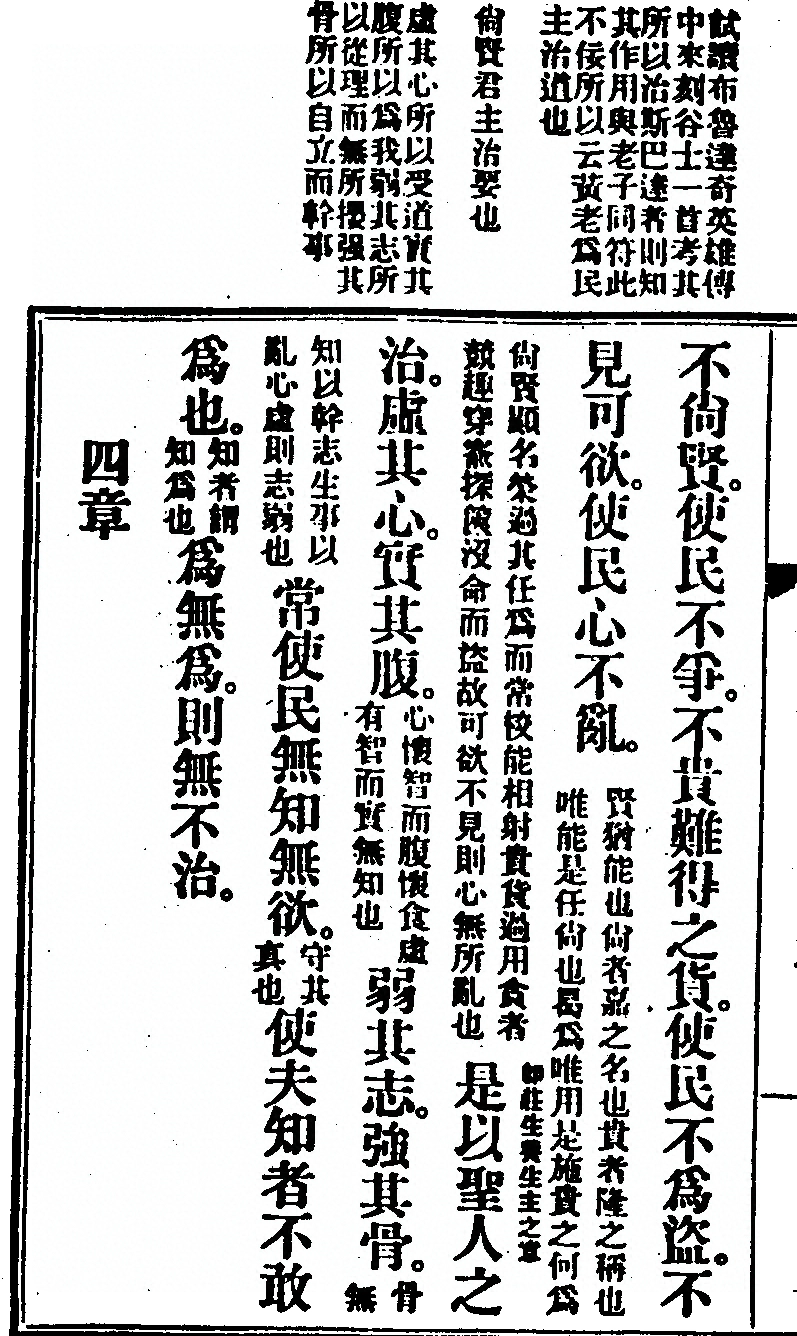 試讀布魯達奇英雄傳
中來刻谷士一首考其
所以治斯巴達者則知
其作用與老子同符此
不佞所以云黃老爲民
主治道也
尚賢君主治要也
虛其心所以受道實其
腹所以爲我弱其志所
以從理而無所攖强其
骨所以自立而幹事
不尚賢。使民不爭。不貴難得之貨。使民不爲盜。不
見可欲。使民心不亂。
賢猶能也尚者嘉之名也貴者隆之稱也
唯能是任尚也曷爲唯用是施貴之何爲
尚賢顯名榮過其任爲而常校能相射貴貨過用貪者
競趣穿窬探篋沒命而盜故可欲不見則心無所亂也
即莊生養生主之意
是以聖人之
治。虛其心。實其腹。
心懷智而腹懷食虛
有智而實無知也
弱其志。強其骨。
骨
無
知以幹志生事以
亂心虛則志弱也
常使民無知無欲。
守其
真也
使夫知者不敢
爲也。
知者謂
知爲也
爲無爲。則無不治。
四章